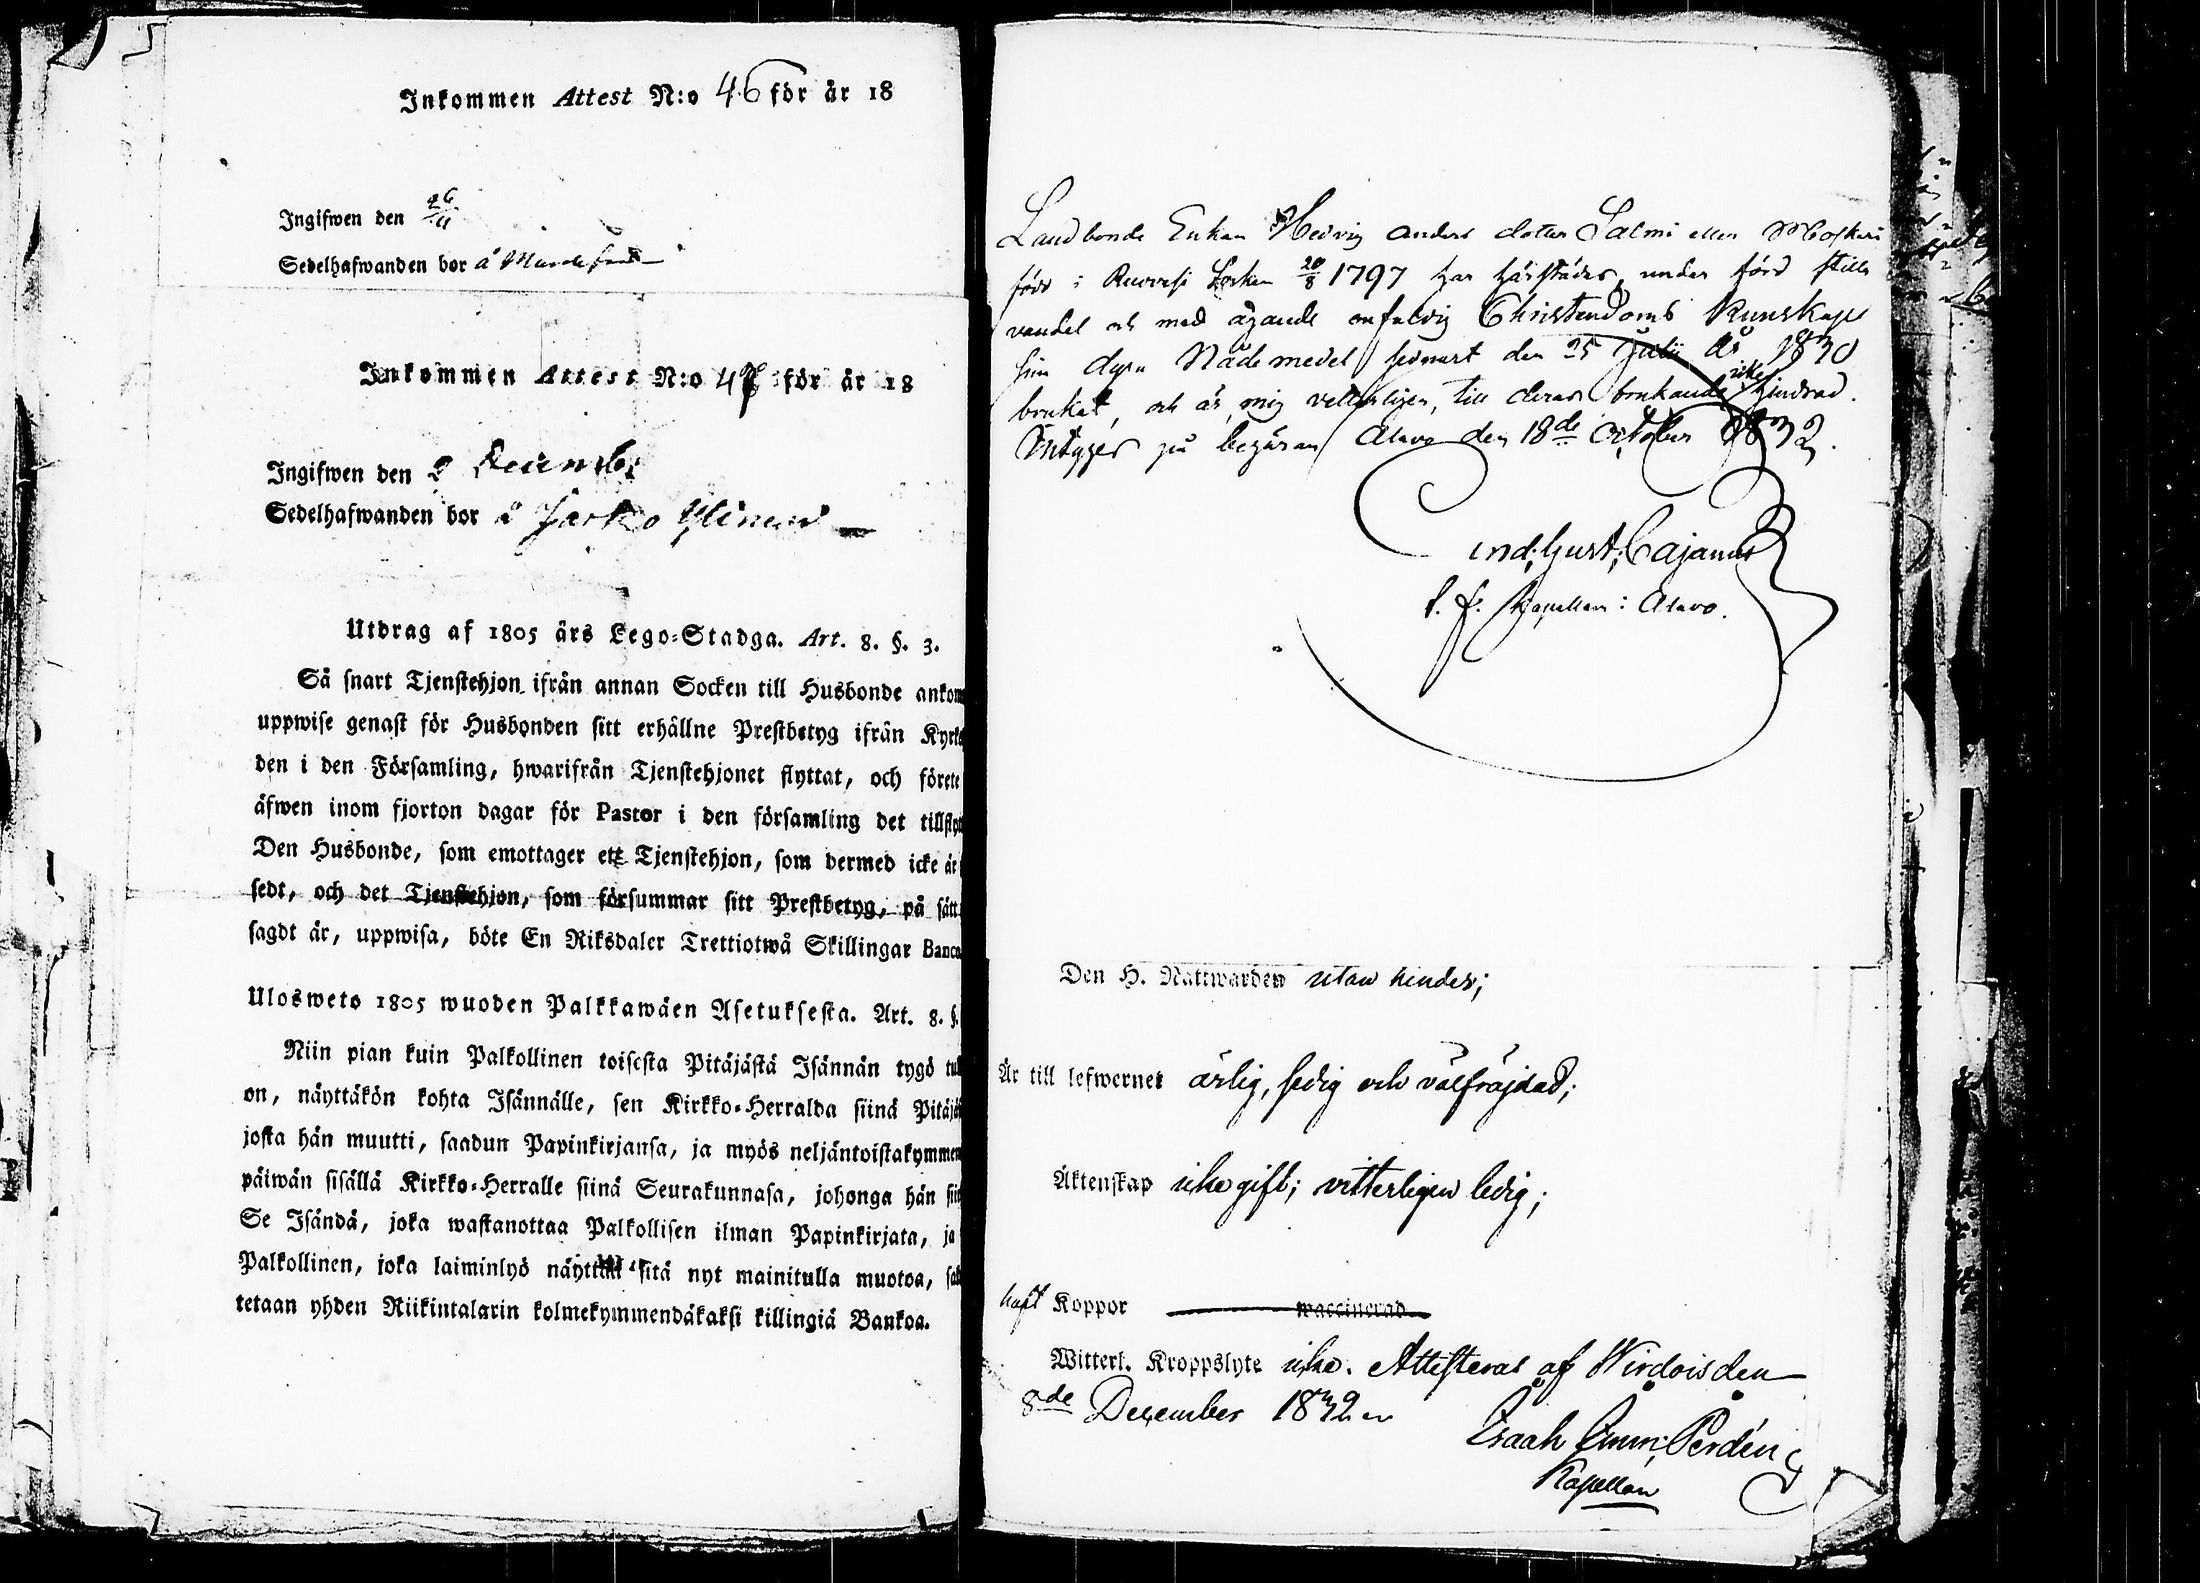 Inkommen Attest N:o 46 för år 18
Ingifwen den 26/11
Sedelhafwanden bor å
Inkommen Attest N:o för år 18
Ingifwen den 2 December
Sedelhafwanden bor å Jarko
Utdrag af 1805 års Lego-Stadga. Art. 8. §. 3.
Så snart Tjenstehjon ifrån annan Socken till Husbonde ankom
uppwise genast för Husbonden sitt erhållne Prestbetyg ifrån Kyrko
den i den Församling, hwarifrån Tjenstehjonet flyttat, och förete
äfwen inom fjorton dagar för Pastor i den församling det tillflytt
Den Husbonde, som emottager ett Tjenstehjon, som dermed icke är
sedt, och det Tjenstehjon, som försummar sitt Prestbetyg, på sätt
sagdt är, uppwisa, böte En Riksdaler Trettiotwå Skillingar Banco
Ulosweto 1805 wuoden Palkkawäen Asetuksesta. Art. 8. §.
Niin pian kuin Palkollinen toisesta Pitäjästä Isännän tygö tul
on, näyttäkön kohta Isännälle, sen Kirkko-Herralda siinä Pitäjä
josta hän muutti, saadun Papinkirjansa, ja myös neljäntoistakymmen
päiwän sisällä Kirkko-Herralle siinä Seurakunnasa, johonga hän sii
Se Isändä, joka wastanottaa Palkollisen ilman Papinkirjata, ja
Palkollinen, joka laiminlyö näyttää sitä nyt mainitulla muotoa, sak
tetaan yhden Riikintalarin kolmekymmendäkaksi killingiä Bankoa.
Landbonde Enkan Hedvig Anders dotter Salmi eller
född i Ruovesi Socken 20/8 1797 har härstädes, under förd stilla
vandel och med ägande enfaldig Christendoms Kunskap
sina dyra Nådemedel sednast den 25 Julii år 1830
brukat, och är, mig vetterligen, till deras brukande icke hindrad.
Intygas på begäran Alavo den 18de October 1832.
And. Gust. Cajanus
v. f. Kapellan i Alavo.
Den H. Nattwarden utan hinder;
Är till lefwernet ärlig, sedig och välfräjdad;
Äktenskap icke gift; vitterligen ledig;
haft Koppor waccinerad
Witterl. Kroppslyte icke. Attesteras af Wirdois den
8de December 1832
Isaak Emm. Perdén
Kapellan